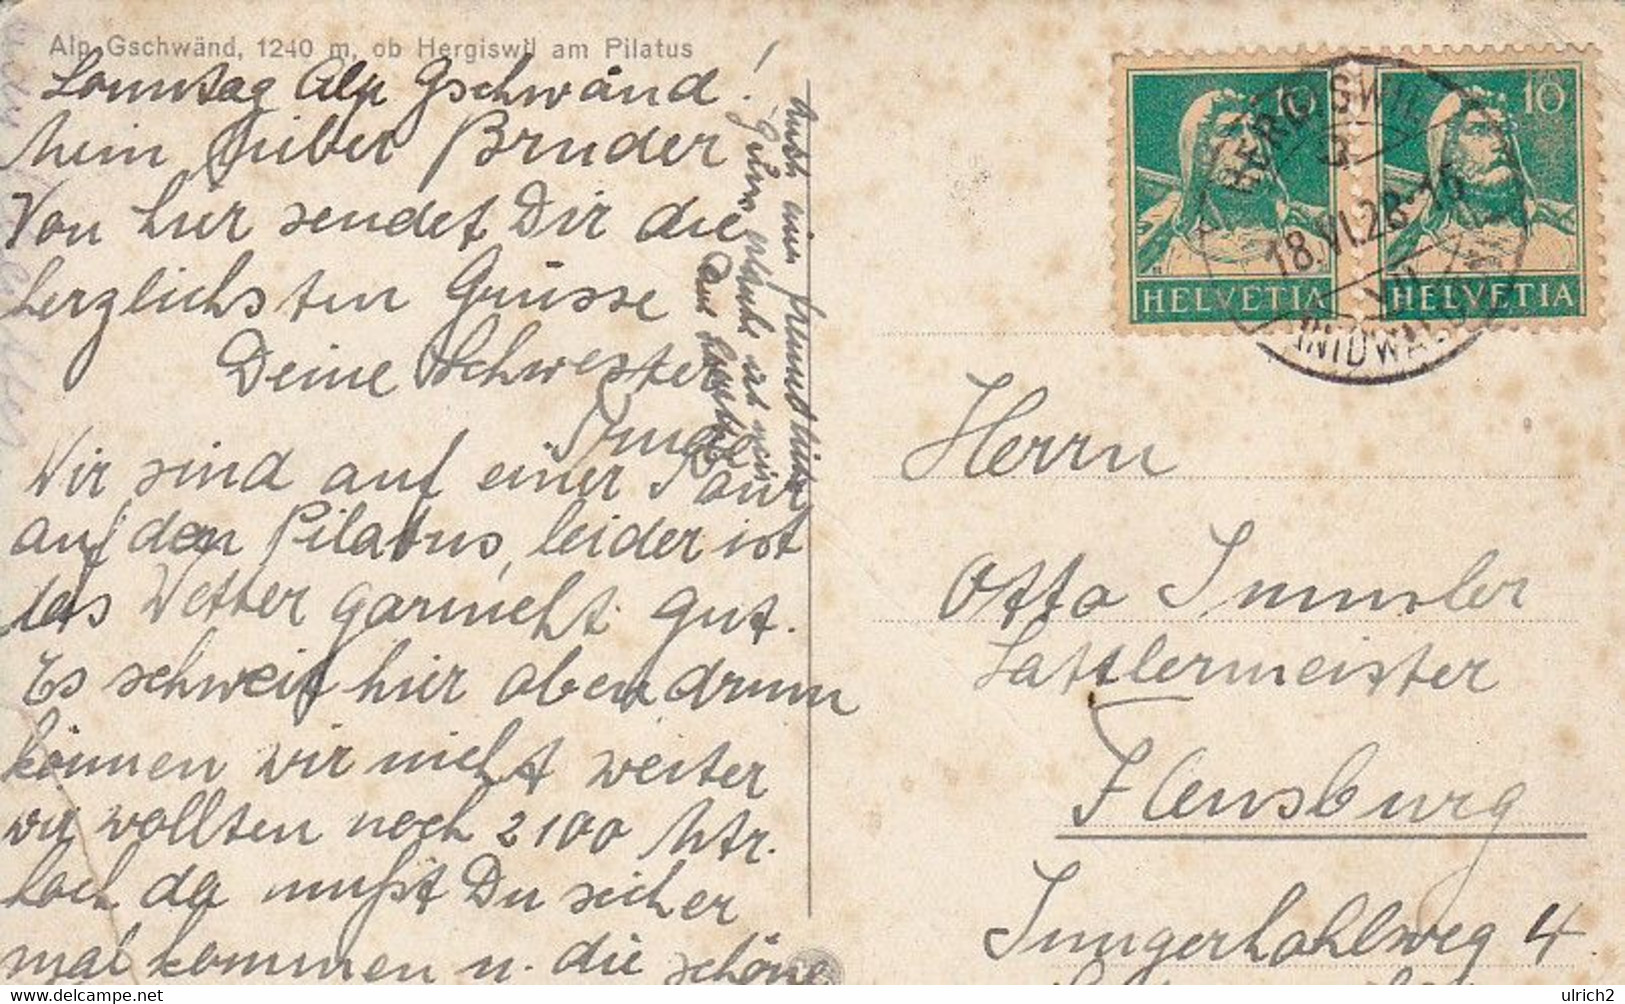 Alp Gschwänd, 1240 m, ob Hergiswil am Pilatus
Sonntag Alp Gschwänd!
Mein lieber Bruder
Von hier sendet Dir die
herzlichsten Grüsse
Deine Schwester
Wir sind auf einer Tour
auf den Pilatus, leider ist
das Wetter garnicht gut.
Es schneit hier oben drum
können wir nicht weiter
wir wollten noch 2100 Mtr.
hoch da mußt Du sicher
mal kommen u. die schöne
Auch einen freundlichen
Gruss
10
10
HELVETIA
HELVETIA
HERGISWIL
18.VI.28-15
(NIDWALDEN)
Herrn
Otto
Sattlermeister
Flensburg
Jungerhohlweg 4
ulrich2